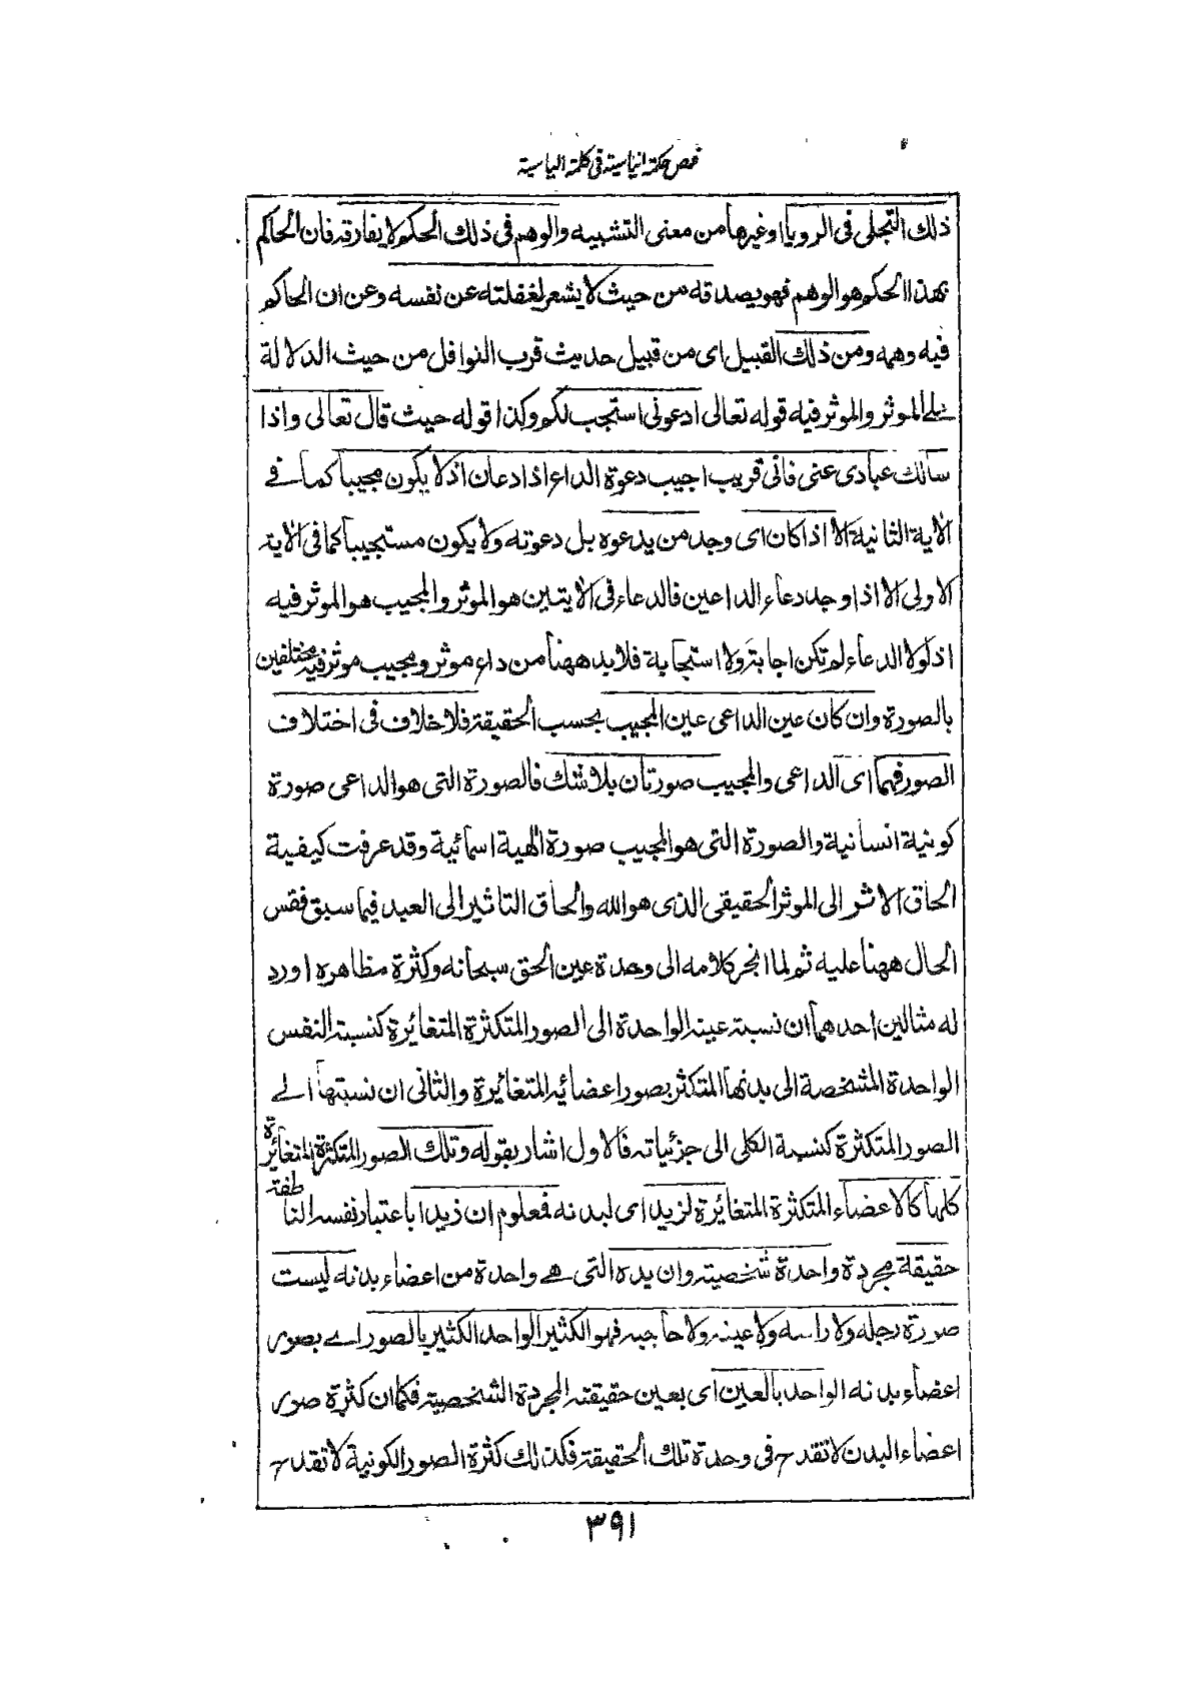 فص حكمة ايناسية فى كلمة الياسية
ذلك التجلى فى الرويا اوغيرها من معنى التشبيه والوهم فى ذلك الحكم لا يفارقه فان الحاكم
بهذا الحكم هو الوهم فهو يصدقه من حيث لا يشعر لغفلته عن نفسه وعن ان الحاكم
فيه وهمه ومن ذلك القبيل اى من قبيل حديث قرب النوافل من حيث الدلالة
على الموثر والموثر فيه قوله تعالى ادعونى استجب لكم وكذا قوله حيث قال تعالى واذا
سالك عبادى عنى فانى قريب اجيب دعوة الداع اذا دعان اذ لا يكون مجيبا كما فے
الاية الثانية الا اذا كان اى وجد من يدعوه بل دعوته ولا يكون مستجيبا كما فى الاية
الاولى الا اذا وجد دعاء الداعين فالدعاء فى الايتين هو الموثر والمجيب هو الموثر فيه
اذ لولا الدعاء لم تكن اجابة ولا استجابة فلا بد ههنا من داع موثر ومجيب موثر فيه مختلفين
بالصورة وان كان عين الداعى عين المجيب بحسب الحقيقة فلا خلاف فى اختلاف
الصور فهما اى الداعى والمجيب صورتان بلا شك فالصورة التى هو الداعى صورة
كونية انسانية والصورة التى هو المجيب صورة الٰهية اسمائية وقد عرفت كيفية
الحاق الاثر الى الموثر الحقيقى الذى هو الله والحاق التاثير الى العبد فيما سبق فقس
الحال ههنا عليه ثم لما انجر كلامه الى وحدة عين الحق سبحانه وكثرة مظاهره اورد
له مثالين احدهما ان نسبة عينه الواحدة الى الصور المتكثرة المتغائرة كنسبة النفس
الواحدة المشخصة الى بدنها المتكثر بصور اعضائه المتغايرة والثانى ان نسبتها الے
الصور المتكثرة كنسبة الكلى الى جزئياته فالاول اشار بقوله وتلك الصور المتكثرة المتغائرة
كلها كالاعضاء المتكثرة المتغائرة لزيد اى لبدنه فمعلوم ان زيدا باعتبار نفسه الناطقة
حقيقة مجردة واحدة شخصية وان يده التى هے واحدة من اعضاء بدنه ليست
صورة رجله ولا راسه ولا عينه ولا حاجبه فهو الكثير الواحد الكثير بالصور اے بصور
اعضاء بدنه الواحد بالعين اى بعين حقيقته المجردة الشخصية فكما ان كثرة صور
اعضاء البدن لا تقدح فى وحدة تلك الحقيقة فكذلك كثرة الصور الكونية لا تقدح
٣٩١